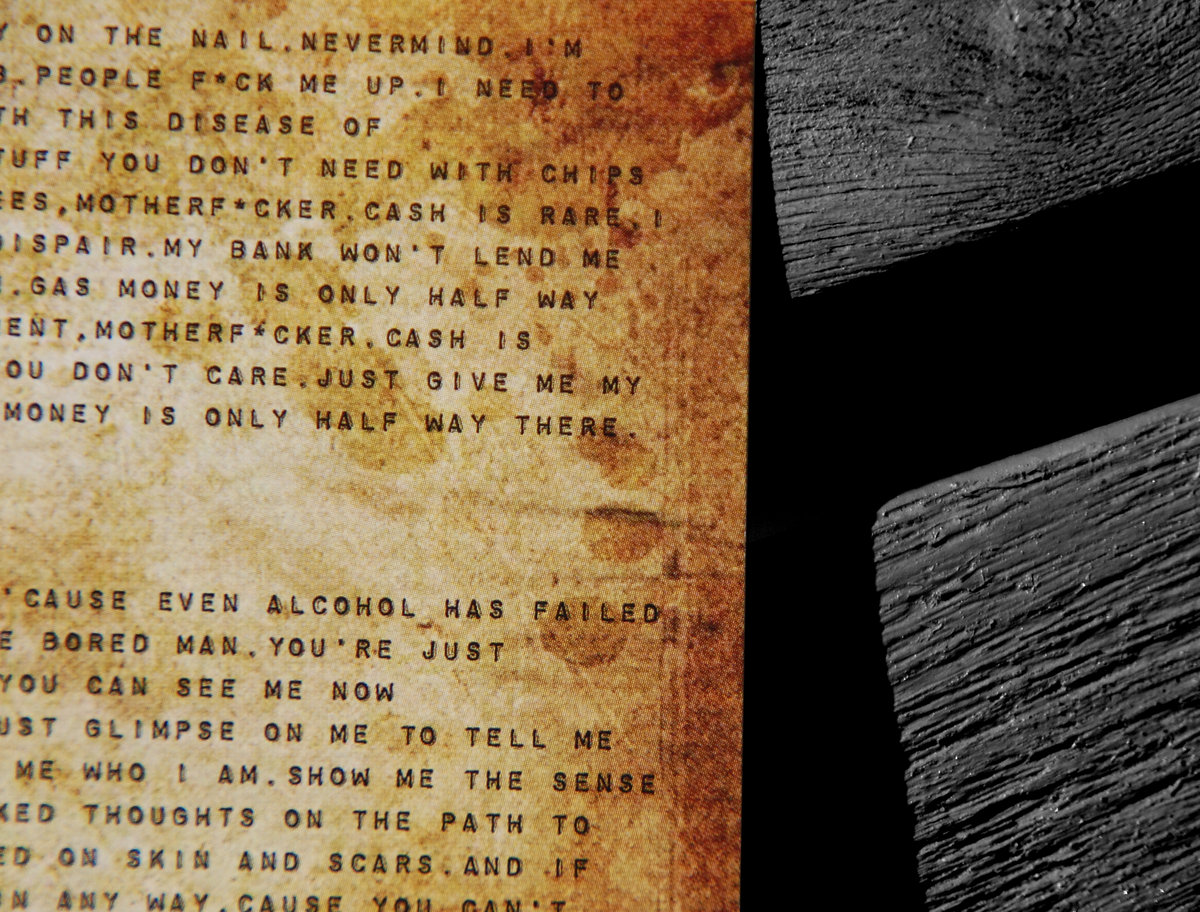 Y ON THE NAIL.NEVERMIND.I'M
B.PEOPLE F*CK ME UP.I NEED TO
TH THIS DISEASE OF
TUFF YOU DON'T NEED WITH CHIPS
EES,MOTHERF*CKER.CASH IS RARE.I
DISPAIR.MY BANK WON'T LEND ME
.GAS MONEY IS ONLY HALF WAY
MENT,MOTHERF*CKER.CASH IS
OU DON'T CARE.JUST GIVE ME MY
MONEY IS ONLY HALF WAY THERE.
'CAUSE EVEN ALCOHOL HAS FAILED
E BORED MAN.YOU'RE JUST
YOU CAN SEE ME NOW
UST GLIMPSE ON ME TO TELL ME
ME WHO I AM.SHOW ME THE SENSE
KED THOUGHTS ON THE PATH TO
ED ON SKIN AND SCARS.AND IF
ON ANY WAY.CAUSE YOU CAN'T